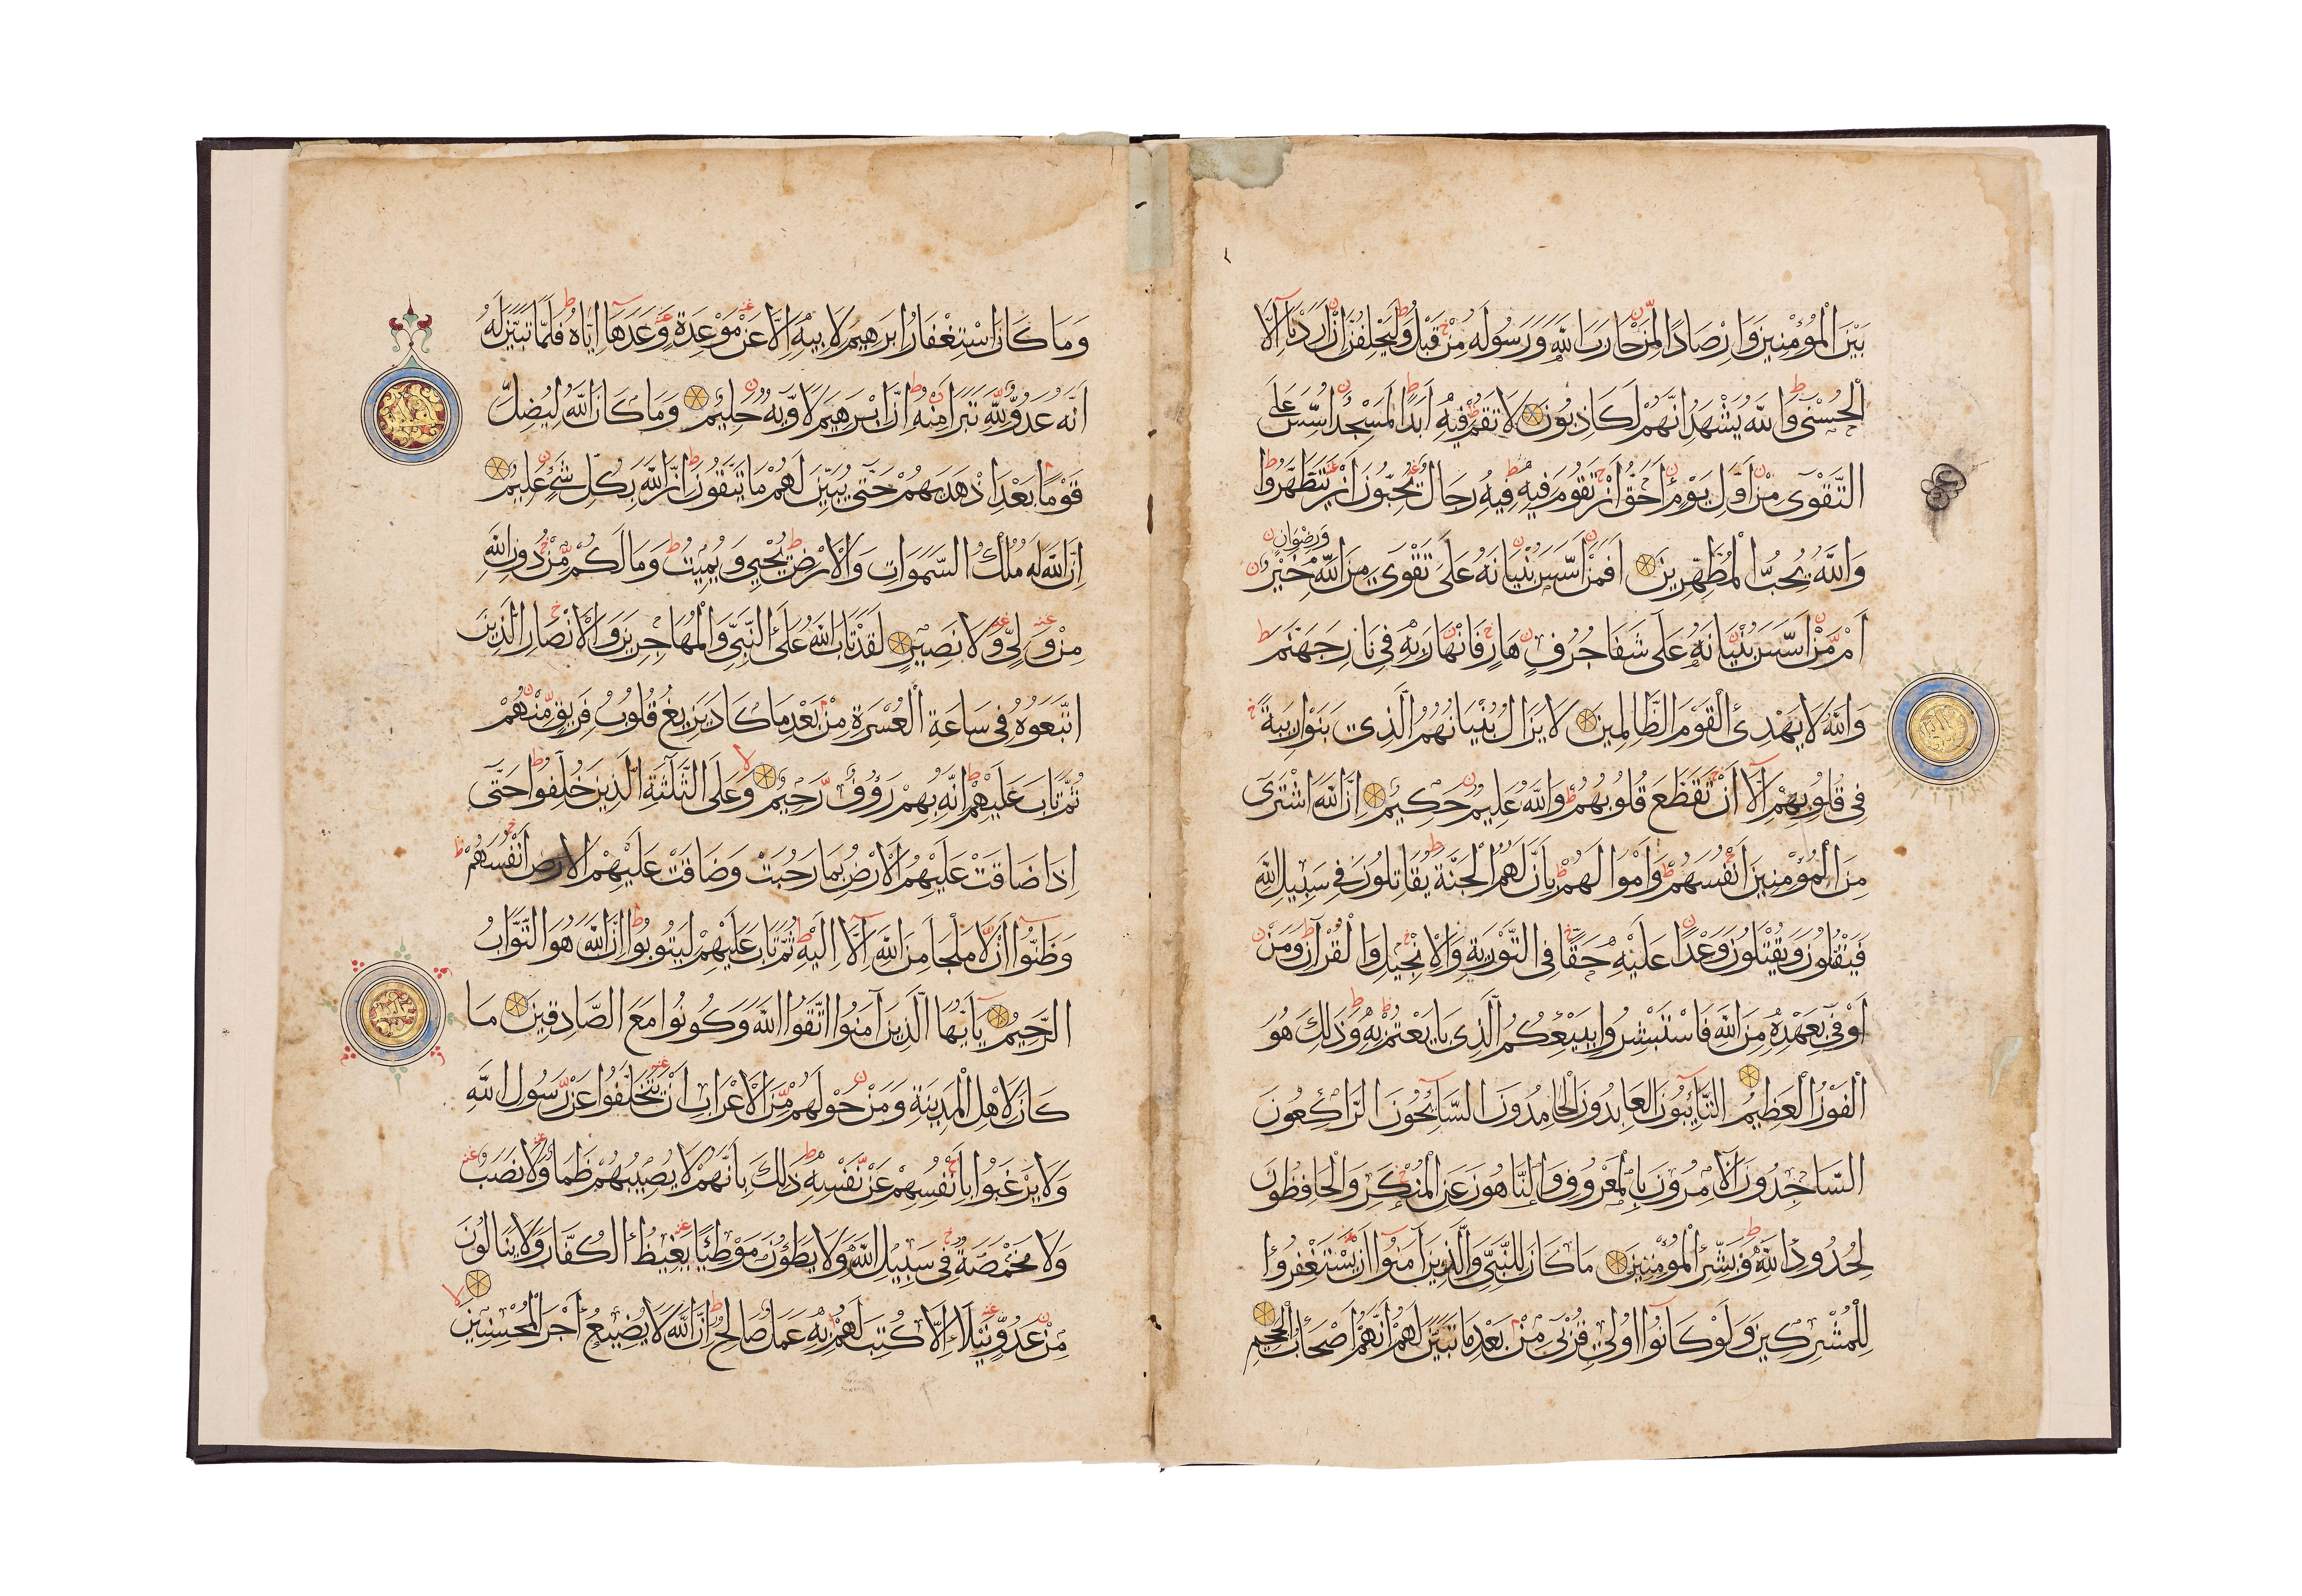 بَيْنَ الْمُؤْمِنِينَ وَاِرْصَادًا لِمَنْ حَارَبَ اللهَ وَرَسُولَهُ مِنْ قَبْلُ وَلَيَحْلِفُنَّ اِنْ اَرَدْنَآ اِلَّا
الْحُسْنٰى وَاللهُ يَشْهَدُ اِنَّهُمْ لَكَاذِبُونَ لَا تَقُمْ فِيهِ اَبَدًا لَمَسْجِدٌ اُسِّسَ عَلَى
التَّقْوٰى مِنْ اَوَّلِ يَوْمٍ اَحَقُّ اَنْ تَقُومَ فِيهِ فِيهِ رِجَالٌ يُحِبُّونَ اَنْ يَتَطَهَّرُوا
وَاللهُ يُحِبُّ الْمُطَّهِّرِينَ اَفَمَنْ اَسَّسَ بُنْيَانَهُ عَلٰى تَقْوٰى مِنَ اللهِ وَرِضْوَانٍ خَيْرٌ
اَمْ مَنْ اَسَّسَ بُنْيَانَهُ عَلٰى شَفَا جُرُفٍ هَارٍ فَانْهَارَ بِهِ فِى نَارِ جَهَنَّمَ
وَاللهُ لَا يَهْدِى الْقَوْمَ الظَّالِمِينَ لَا يَزَالُ بُنْيَانُهُمُ الَّذِى بَنَوْا رِيبَةً
فِى قُلُوبِهِمْ اِلَّآ اَنْ تَقَطَّعَ قُلُوبُهُمْ وَاللهُ عَلِيمٌ حَكِيمٌ اِنَّ اللهَ اشْتَرٰى
مِنَ الْمُؤْمِنِينَ اَنْفُسَهُمْ وَاَمْوَالَهُمْ بِاَنَّ لَهُمُ الْجَنَّةَ يُقَاتِلُونَ فِى سَبِيلِ اللهِ
فَيَقْتُلُونَ وَيُقْتَلُونَ وَعْدًا عَلَيْهِ حَقًّا فِى التَّوْرٰيةِ وَالْاِنْجِيلِ وَالْقُرْآنِ وَمَنْ
اَوْفٰى بِعَهْدِهِ مِنَ اللهِ فَاسْتَبْشِرُوا بِبَيْعِكُمُ الَّذِى بَايَعْتُمْ بِهِ وَذٰلِكَ هُوَ
الْفَوْزُ الْعَظِيمُ التَّآئِبُونَ الْعَابِدُونَ الْحَامِدُونَ السَّآئِحُونَ الرَّاكِعُونَ
السَّاجِدُونَ الْآمِرُونَ بِالْمَعْرُوفِ وَالنَّاهُونَ عَنِ الْمُنْكَرِ وَالْحَافِظُونَ
لِحُدُودِ اللهِ وَبَشِّرِ الْمُؤْمِنِينَ مَا كَانَ لِلنَّبِىِّ وَالَّذِينَ آمَنُوآ اَنْ يَسْتَغْفِرُوا
لِلْمُشْرِكِينَ وَلَوْ كَانُوآ اُولِى قُرْبٰى مِنْ بَعْدِ مَا تَبَيَّنَ لَهُمْ اَنَّهُمْ اَصْحَابُ الْجَحِيمِ
وَمَا كَانَ اسْتِغْفَارُ اِبْرَهِيمَ لِاَبِيهِ اِلَّا عَنْ مَوْعِدَةٍ وَعَدَهَآ اِيَّاهُ فَلَمَّا تَبَيَّنَ لَهُ
اَنَّهُ عَدُوٌّ لِلّٰهِ تَبَرَّاَ مِنْهُ اِنَّ اِبْرَهِيمَ لَاَوَّاهٌ حَلِيمٌ وَمَا كَانَ اللهُ لِيُضِلَّ
قَوْمًا بَعْدَ اِذْ هَدٰيهُمْ حَتّٰى يُبَيِّنَ لَهُمْ مَا يَتَّقُونَ اِنَّ اللهَ بِكُلِّ شَىْءٍ عَلِيمٌ
اِنَّ اللهَ لَهُ مُلْكُ السَّمٰوَاتِ وَالْاَرْضِ يُحْيِى وَيُمِيتُ وَمَا لَكُمْ مِنْ دُونِ اللهِ
مِنْ وَلِىٍّ وَلَا نَصِيرٍ لَقَدْ تَابَ اللهُ عَلَى النَّبِىِّ وَالْمُهَاجِرِينَ وَالْاَنْصَارِ الَّذِينَ
اتَّبَعُوهُ فِى سَاعَةِ الْعُسْرَةِ مِنْ بَعْدِ مَا كَادَ يَزِيغُ قُلُوبُ فَرِيقٍ مِنْهُمْ
ثُمَّ تَابَ عَلَيْهِمْ اِنَّهُ بِهِمْ رَؤُوفٌ رَحِيمٌ وَعَلَى الثَّلٰثَةِ الَّذِينَ خُلِّفُوا حَتّٰى
اِذَا ضَاقَتْ عَلَيْهِمُ الْاَرْضُ بِمَا رَحُبَتْ وَضَاقَتْ عَلَيْهِمْ الارض اَنْفُسُهُمْ
وَظَنُّوآ اَنْ لَا مَلْجَاَ مِنَ اللهِ اِلَّآ اِلَيْهِ ثُمَّ تَابَ عَلَيْهِمْ لِيَتُوبُوا اِنَّ اللهَ هُوَ التَّوَّابُ
الرَّحِيمُ يَآ اَيُّهَا الَّذِينَ آمَنُوا اتَّقُوا اللهَ وَكُونُوا مَعَ الصَّادِقِينَ مَا
كَانَ لِاَهْلِ الْمَدِينَةِ وَمَنْ حَوْلَهُمْ مِنَ الْاَعْرَابِ اَنْ يَتَخَلَّفُوا عَنْ رَسُولِ اللهِ
وَلَا يَرْغَبُوا بِاَنْفُسِهِمْ عَنْ نَفْسِهِ ذٰلِكَ بِاَنَّهُمْ لَا يُصِيبُهُمْ ظَمَأٌ وَلَا نَصَبٌ
وَلَا مَخْمَصَةٌ فِى سَبِيلِ اللهِ وَلَا يَطَؤُنَ مَوْطِئًا يَغِيظُ الْكُفَّارَ وَلَا يَنَالُونَ
مِنْ عَدُوٍّ نَيْلًا اِلَّا كُتِبَ لَهُمْ بِهِ عَمَلٌ صَالِحٌ اِنَّ اللهَ لَا يُضِيعُ اَجْرَ الْمُحْسِنِينَ